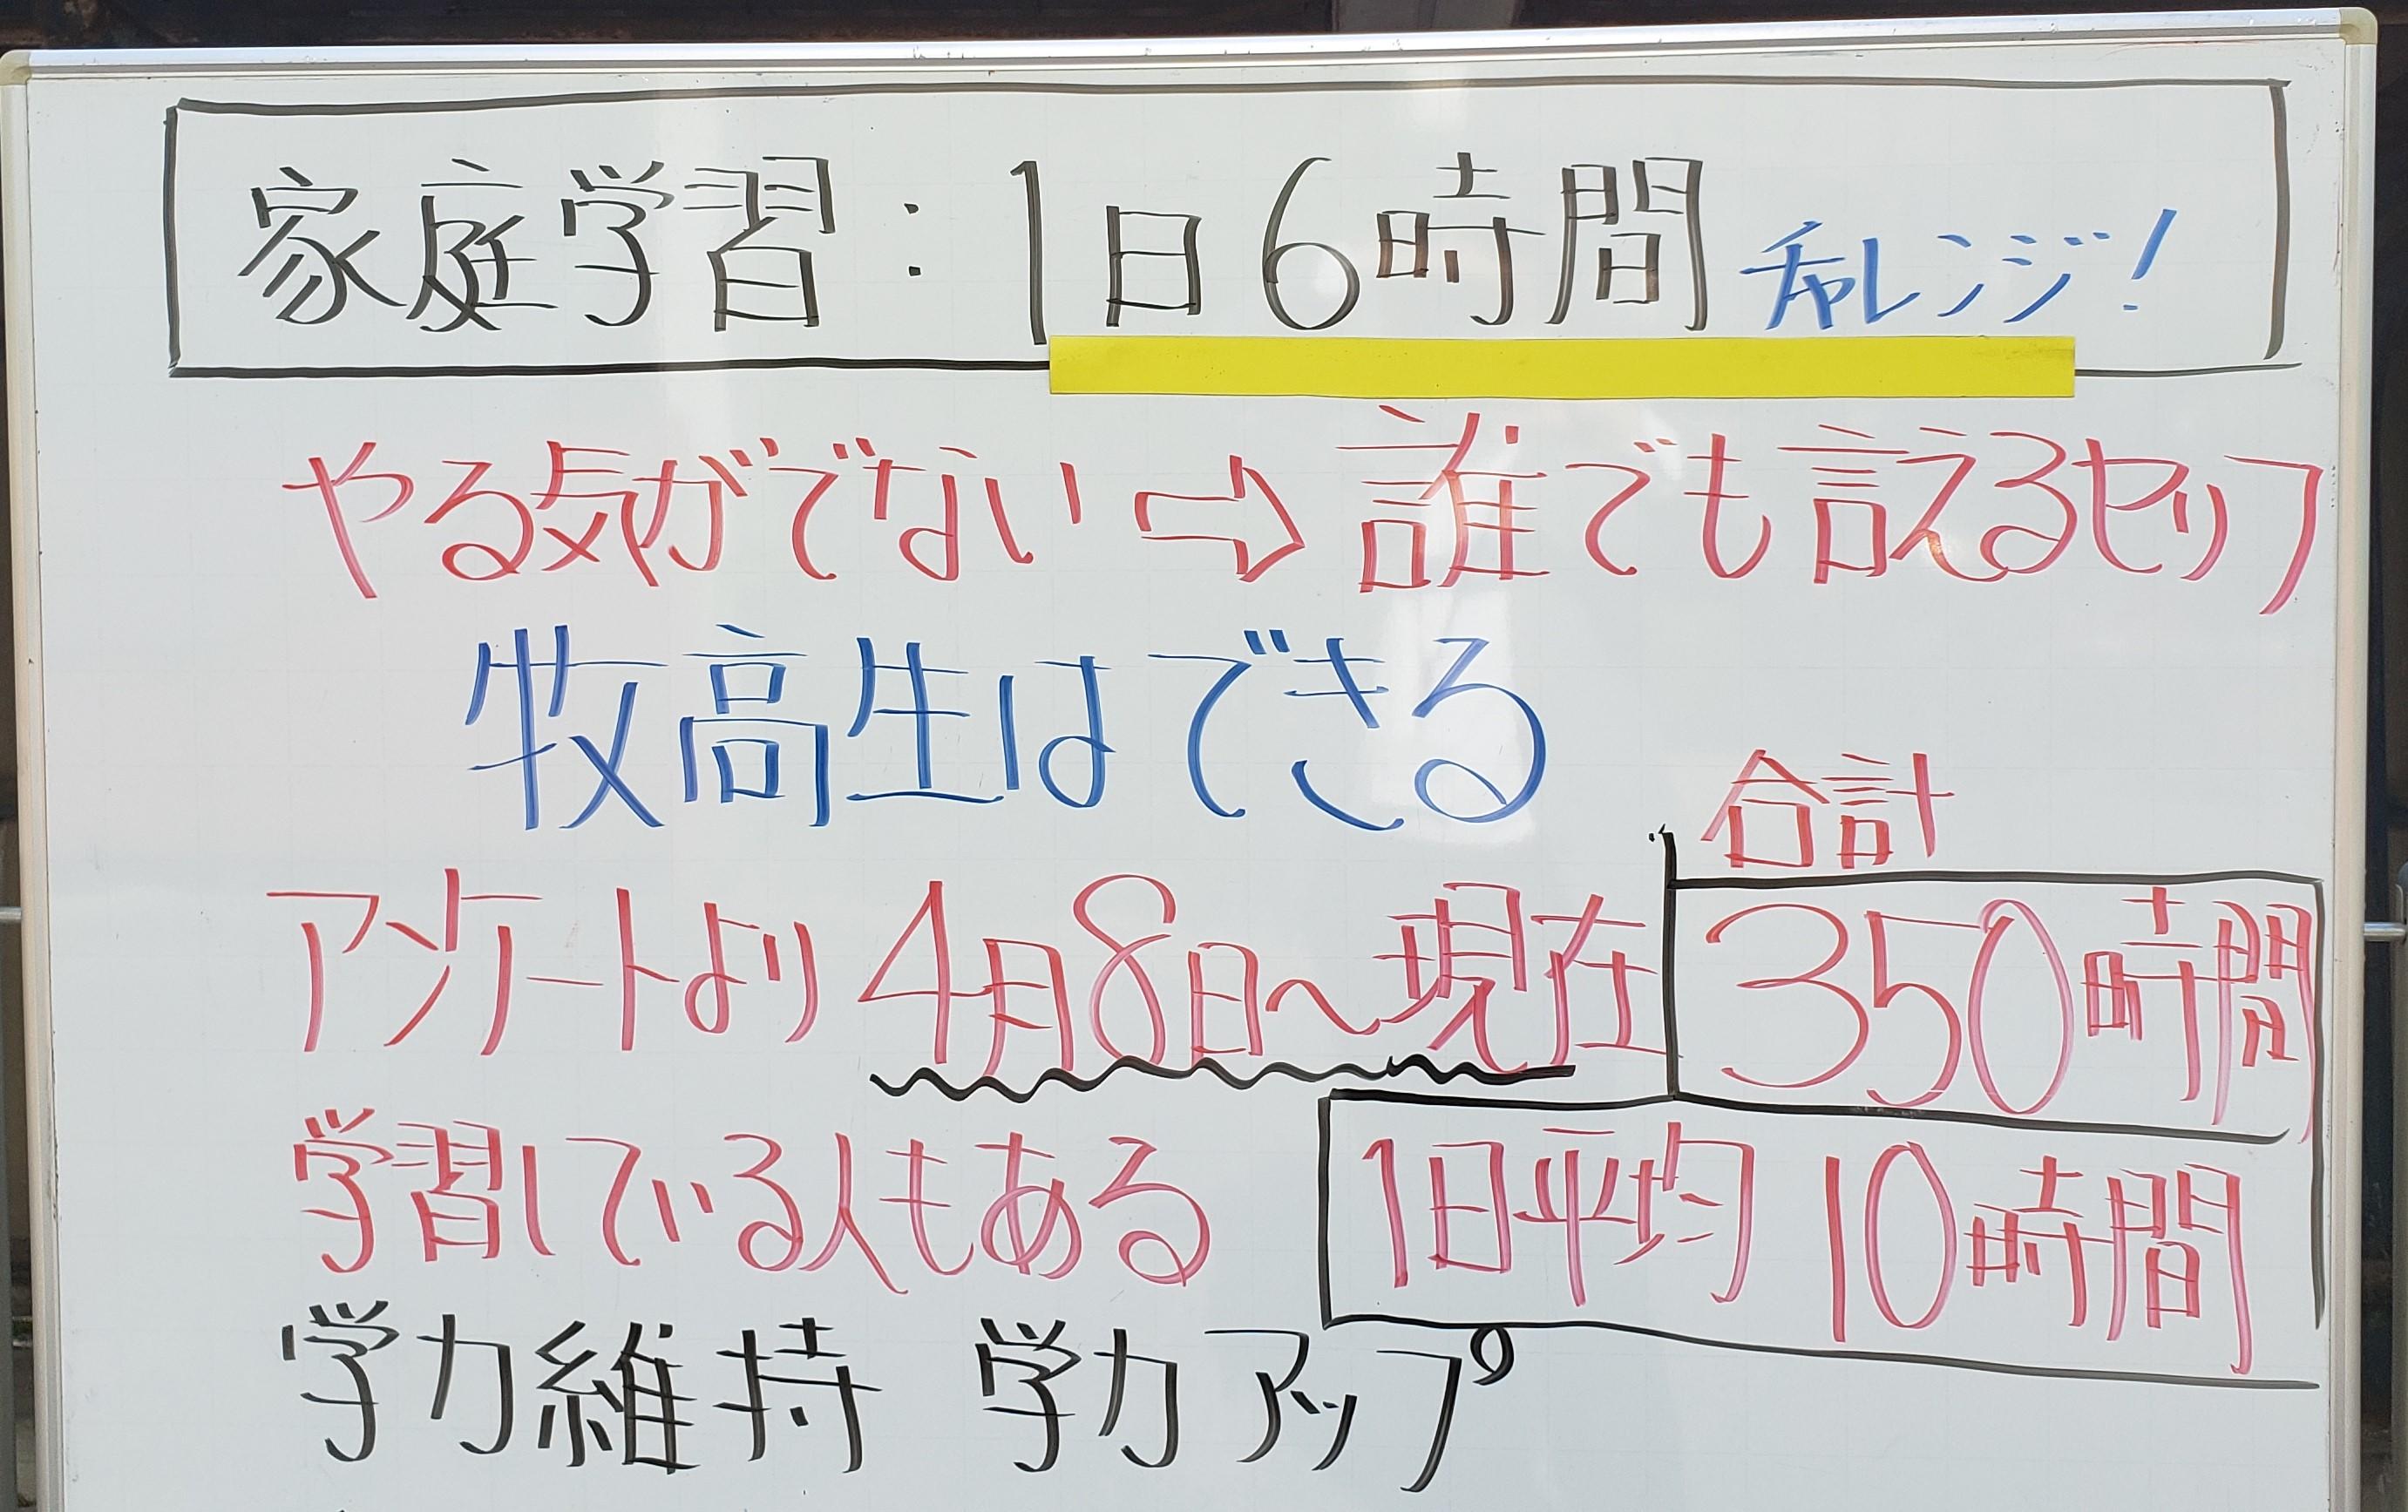 家庭学習:1日6時間 チャレンジ!
やる気がでない⇨誰でも言えるセリフ
牧高生はできる
合計
アンケートより 4月8日～現在 350時間
学習している人もある 1日平均 10時間
学力維持 学力アップ